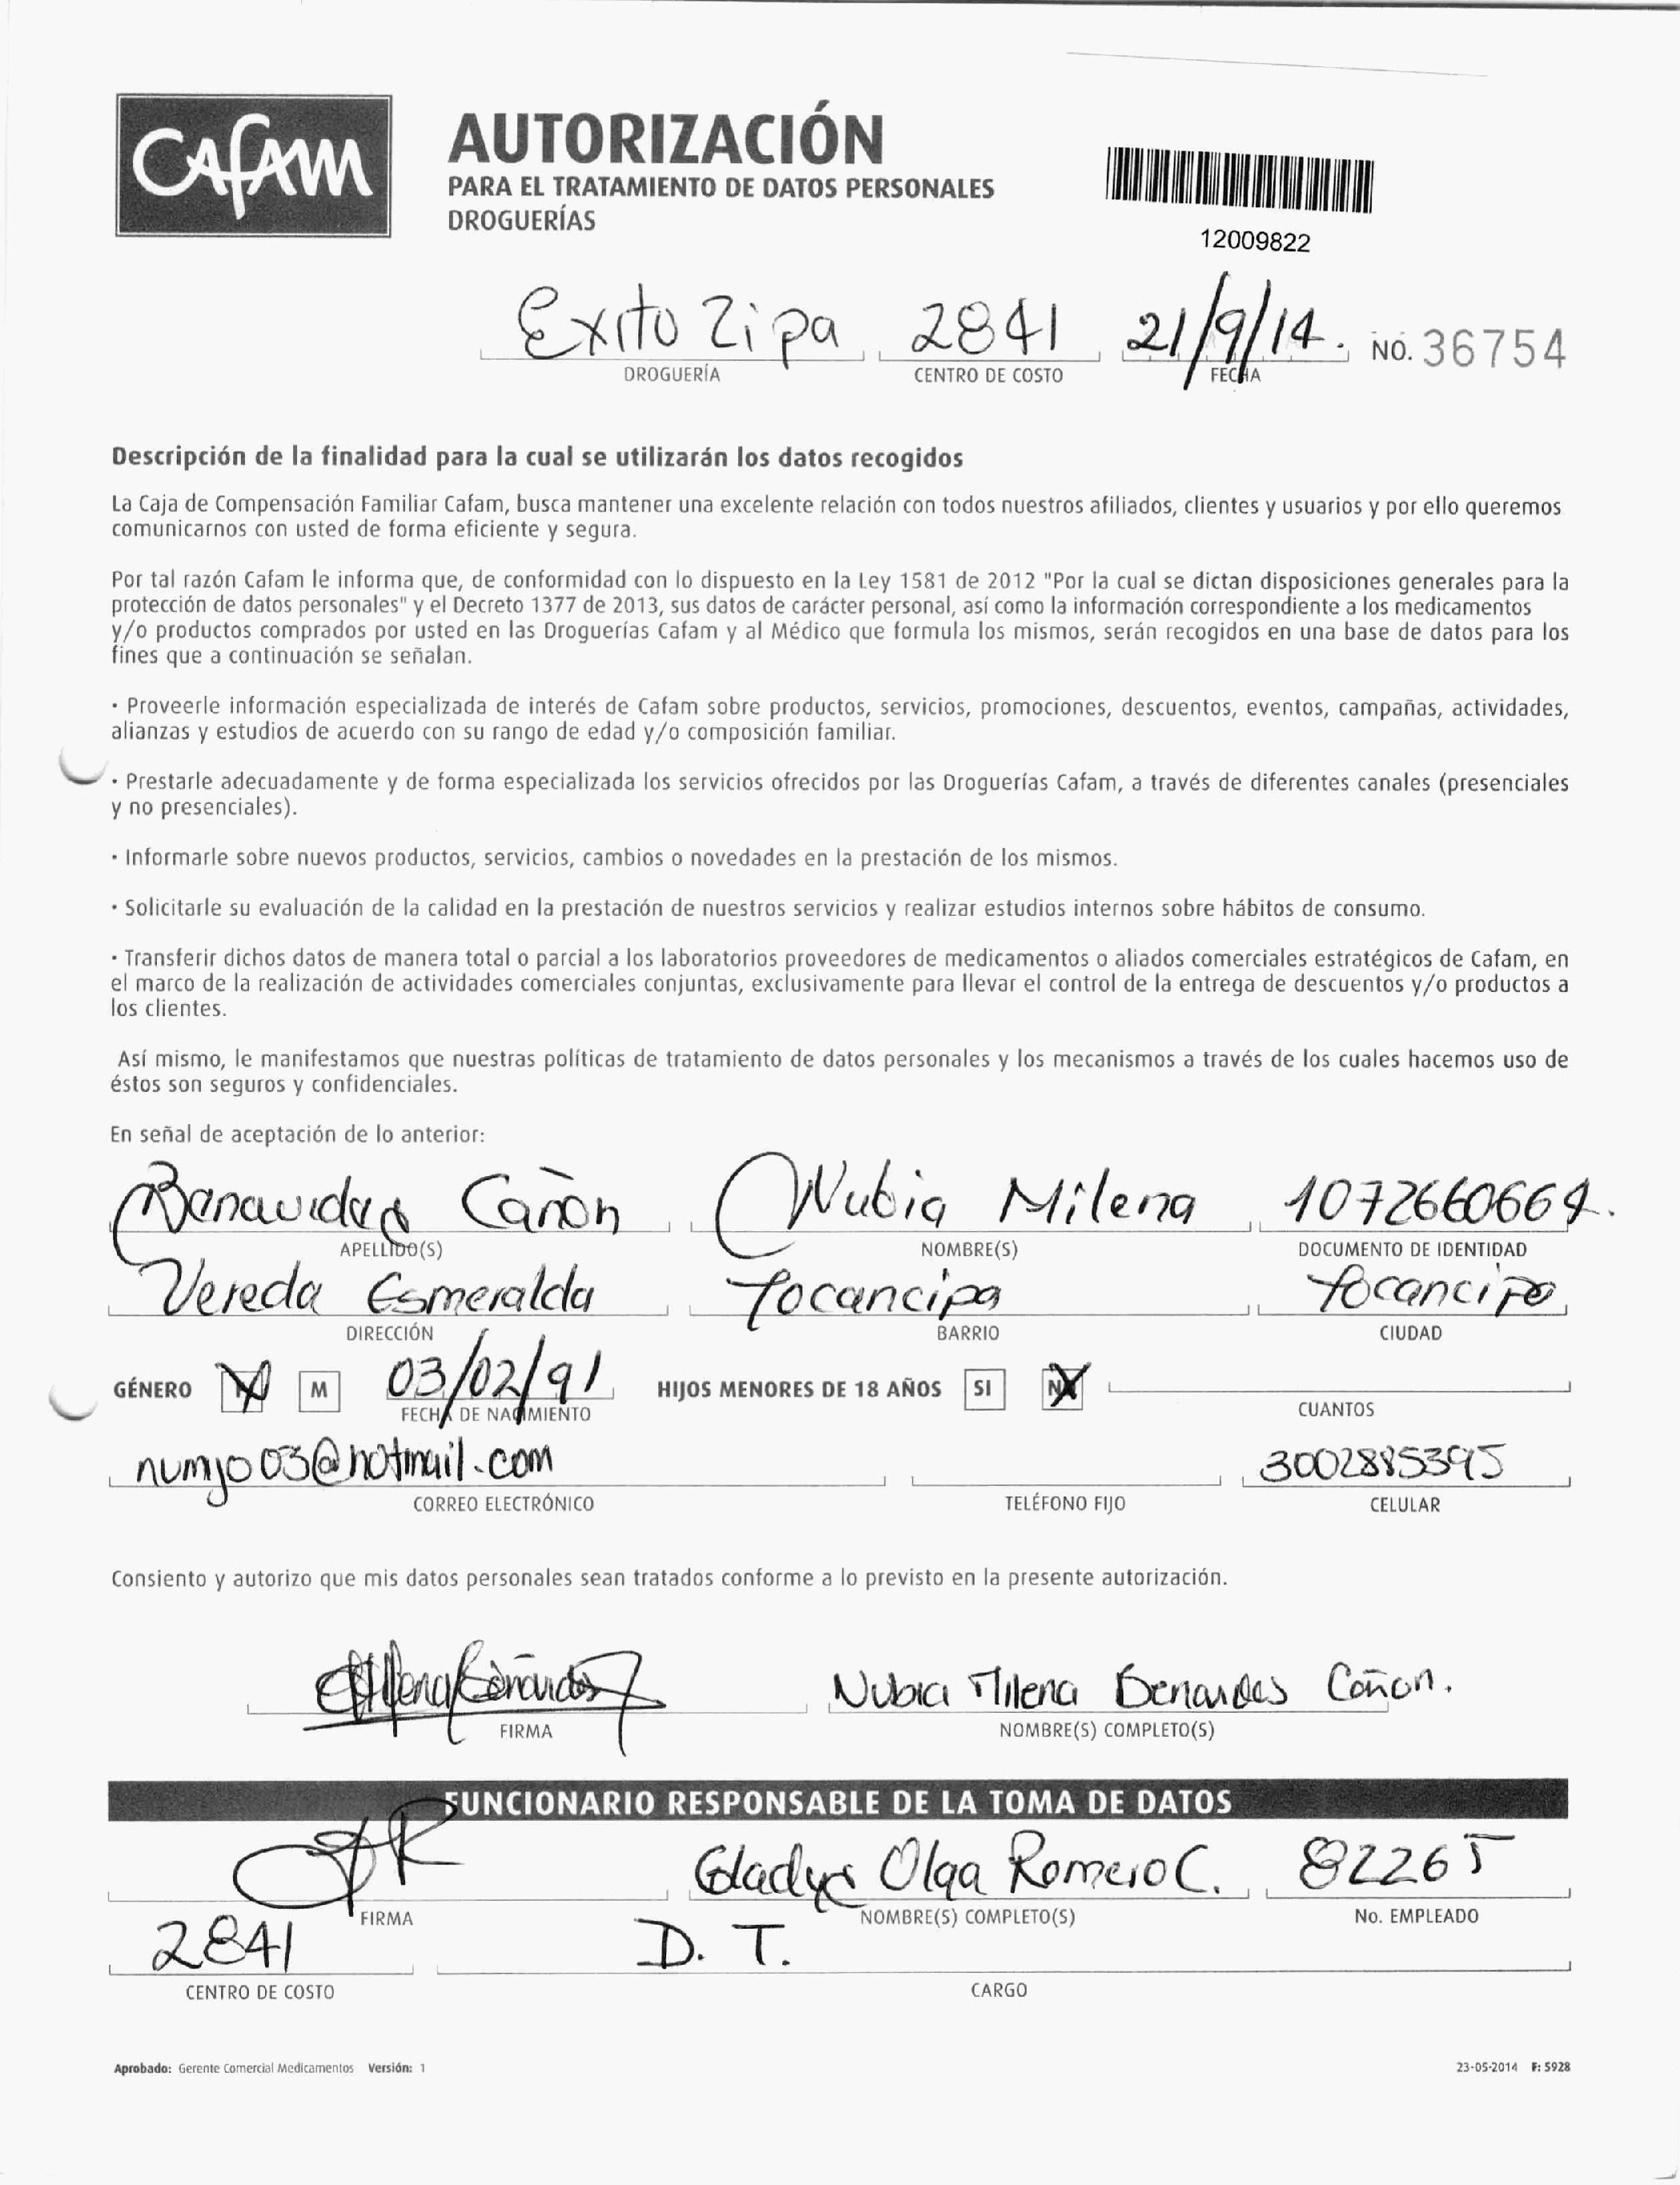 CAFAM
AUTORIZACIÓN
PARA EL TRATAMIENTO DE DATOS PERSONALES
DROGUERÍAS
12009822
Exito Zipa 2841 21/9/14. NO. 36754
DROGUERÍA CENTRO DE COSTO FECHA
Descripción de la finalidad para la cual se utilizarán los datos recogidos
La Caja de Compensación Familiar Cafam, busca mantener una excelente relación con todos nuestros afiliados, clientes y usuarios y por ello queremos
comunicarnos con usted de forma eficiente y segura.
Por tal razón Cafam le informa que, de conformidad con lo dispuesto en la Ley 1581 de 2012 "Por la cual se dictan disposiciones generales para la
protección de datos personales" y el Decreto 1377 de 2013, sus datos de carácter personal, así como la información correspondiente a los medicamentos
y/o productos comprados por usted en las Droguerías Cafam y al Médico que formula los mismos, serán recogidos en una base de datos para los
fines que a continuación se señalan.
· Proveerle información especializada de interés de Cafam sobre productos, servicios, promociones, descuentos, eventos, campañas, actividades,
alianzas y estudios de acuerdo con su rango de edad y/o composición familiar.
· Prestarle adecuadamente y de forma especializada los servicios ofrecidos por las Droguerías Cafam, a través de diferentes canales (presenciales
y no presenciales).
· Informarle sobre nuevos productos, servicios, cambios o novedades en la prestación de los mismos.
· Solicitarle su evaluación de la calidad en la prestación de nuestros servicios y realizar estudios internos sobre hábitos de consumo.
· Transferir dichos datos de manera total o parcial a los laboratorios proveedores de medicamentos o aliados comerciales estratégicos de Cafam, en
el marco de la realización de actividades comerciales conjuntas, exclusivamente para llevar el control de la entrega de descuentos y/o productos a
los clientes.
Así mismo, le manifestamos que nuestras políticas de tratamiento de datos personales y los mecanismos a través de los cuales hacemos uso de
éstos son seguros y confidenciales.
En señal de aceptación de lo anterior:
Cañon Nubia Milena 1072660664.
APELLIDO(S) NOMBRE(S) DOCUMENTO DE IDENTIDAD
Vereda Esmeralda Tocancipa Tocancipa
DIRECCIÓN BARRIO CIUDAD
GÉNERO M 03/02/91 HIJOS MENORES DE 18 AÑOS SI NO
FECHA DE NACIMIENTO CUANTOS
numjo03@hotmail.com 3002885395
CORREO ELECTRÓNICO TELÉFONO FIJO CELULAR
Consiento y autorizo que mis datos personales sean tratados conforme a lo previsto en la presente autorización.
Nubia Milena Benavides Cañon.
FIRMA NOMBRE(S) COMPLETO(S)
FUNCIONARIO RESPONSABLE DE LA TOMA DE DATOS
Gladys Olga Romero C. 82265
FIRMA NOMBRE(S) COMPLETO(S) No. EMPLEADO
2841 D. T.
CENTRO DE COSTO CARGO
Aprobado: Gerente Comercial Medicamentos Versión: 1 23-05-2014 F: 5928